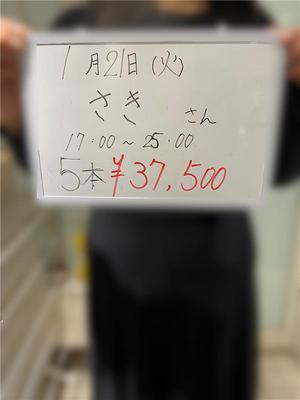 1月21日(火)
さき さん
17:00~25:00
5本¥37,500